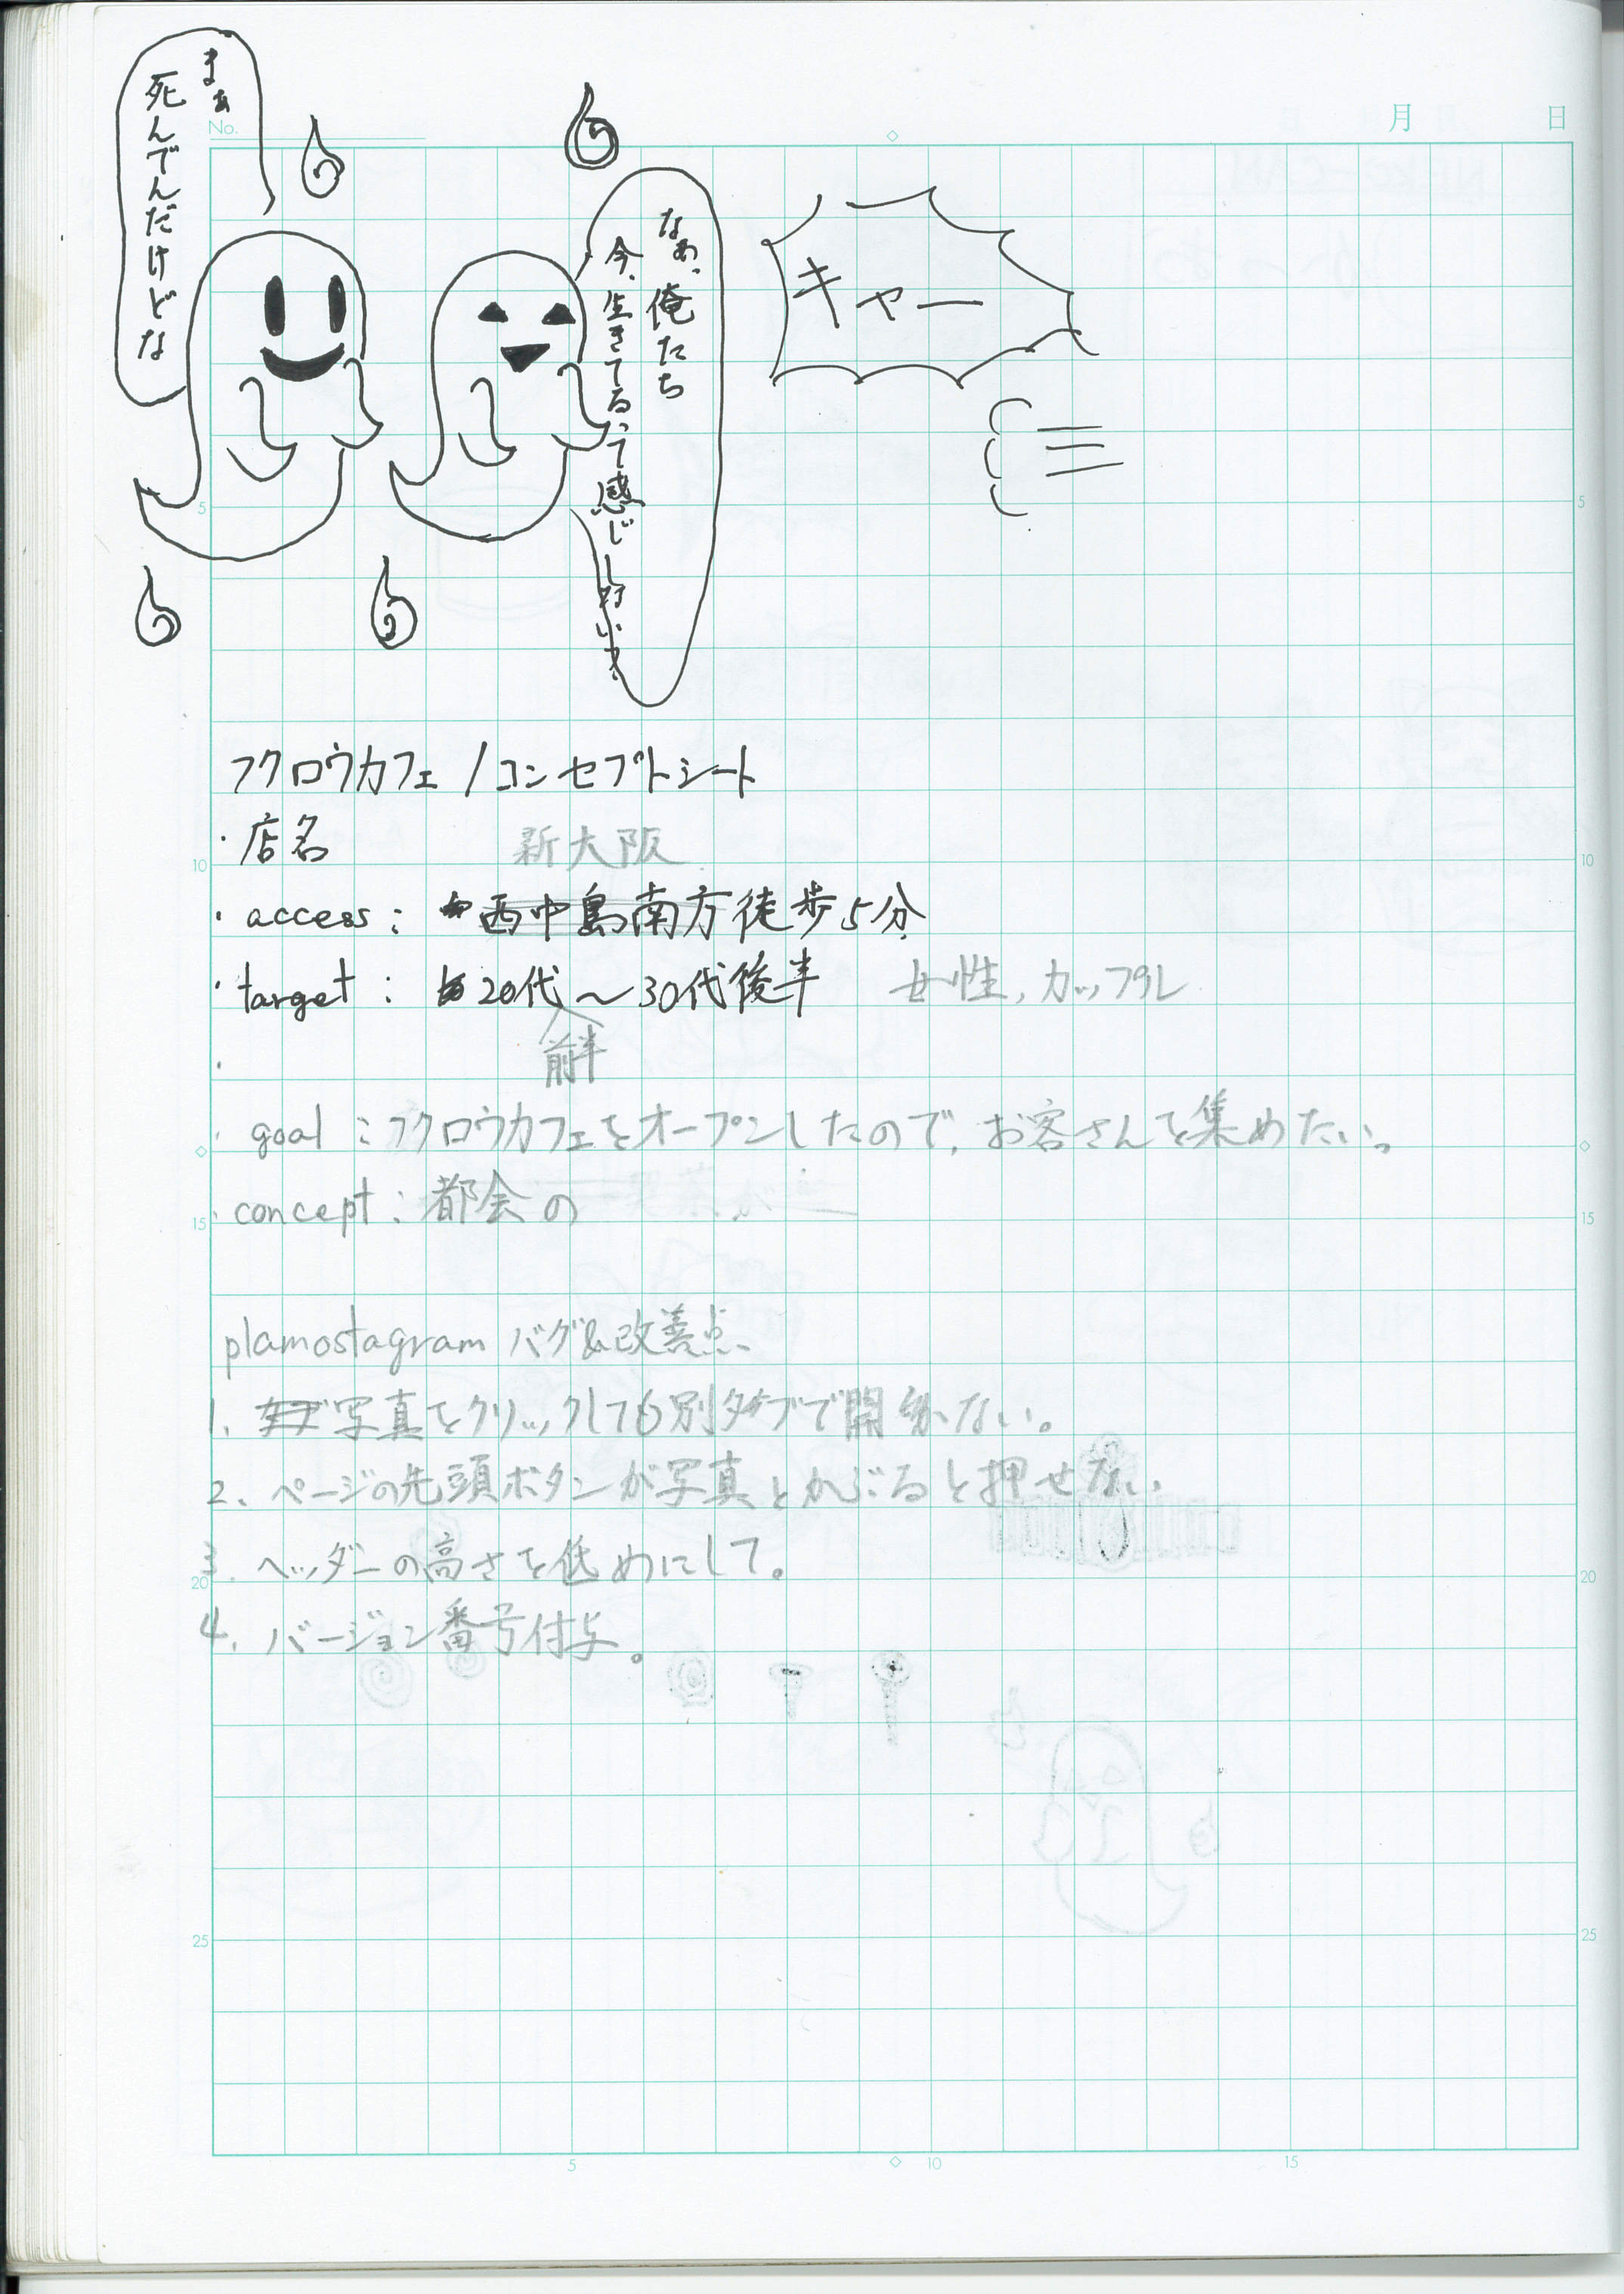 No.
月 日
なぁ、俺たち
今、生きてるって感じしないか
まぁ
死んでんだけどな
キャー
フクロウカフェ/コンセプトシート
・店名
新大阪
・access: 西中島南方徒歩5分
・target: 20代～30代後半 女性,カップル
前半
・
・goal:フクロウカフェをオープンしたので,お客さんを集めたい。
・concept:都会の
plamostagram バグ&改善点
1. 写真をクリックしても別タブで開かない。
2. ページの先頭ボタンが写真とかぶると押せない
3. ヘッダーの高さを低めにして。
4. バージョン番号付与。
5
5
10
10
15
15
20
20
25
25
5 10 15